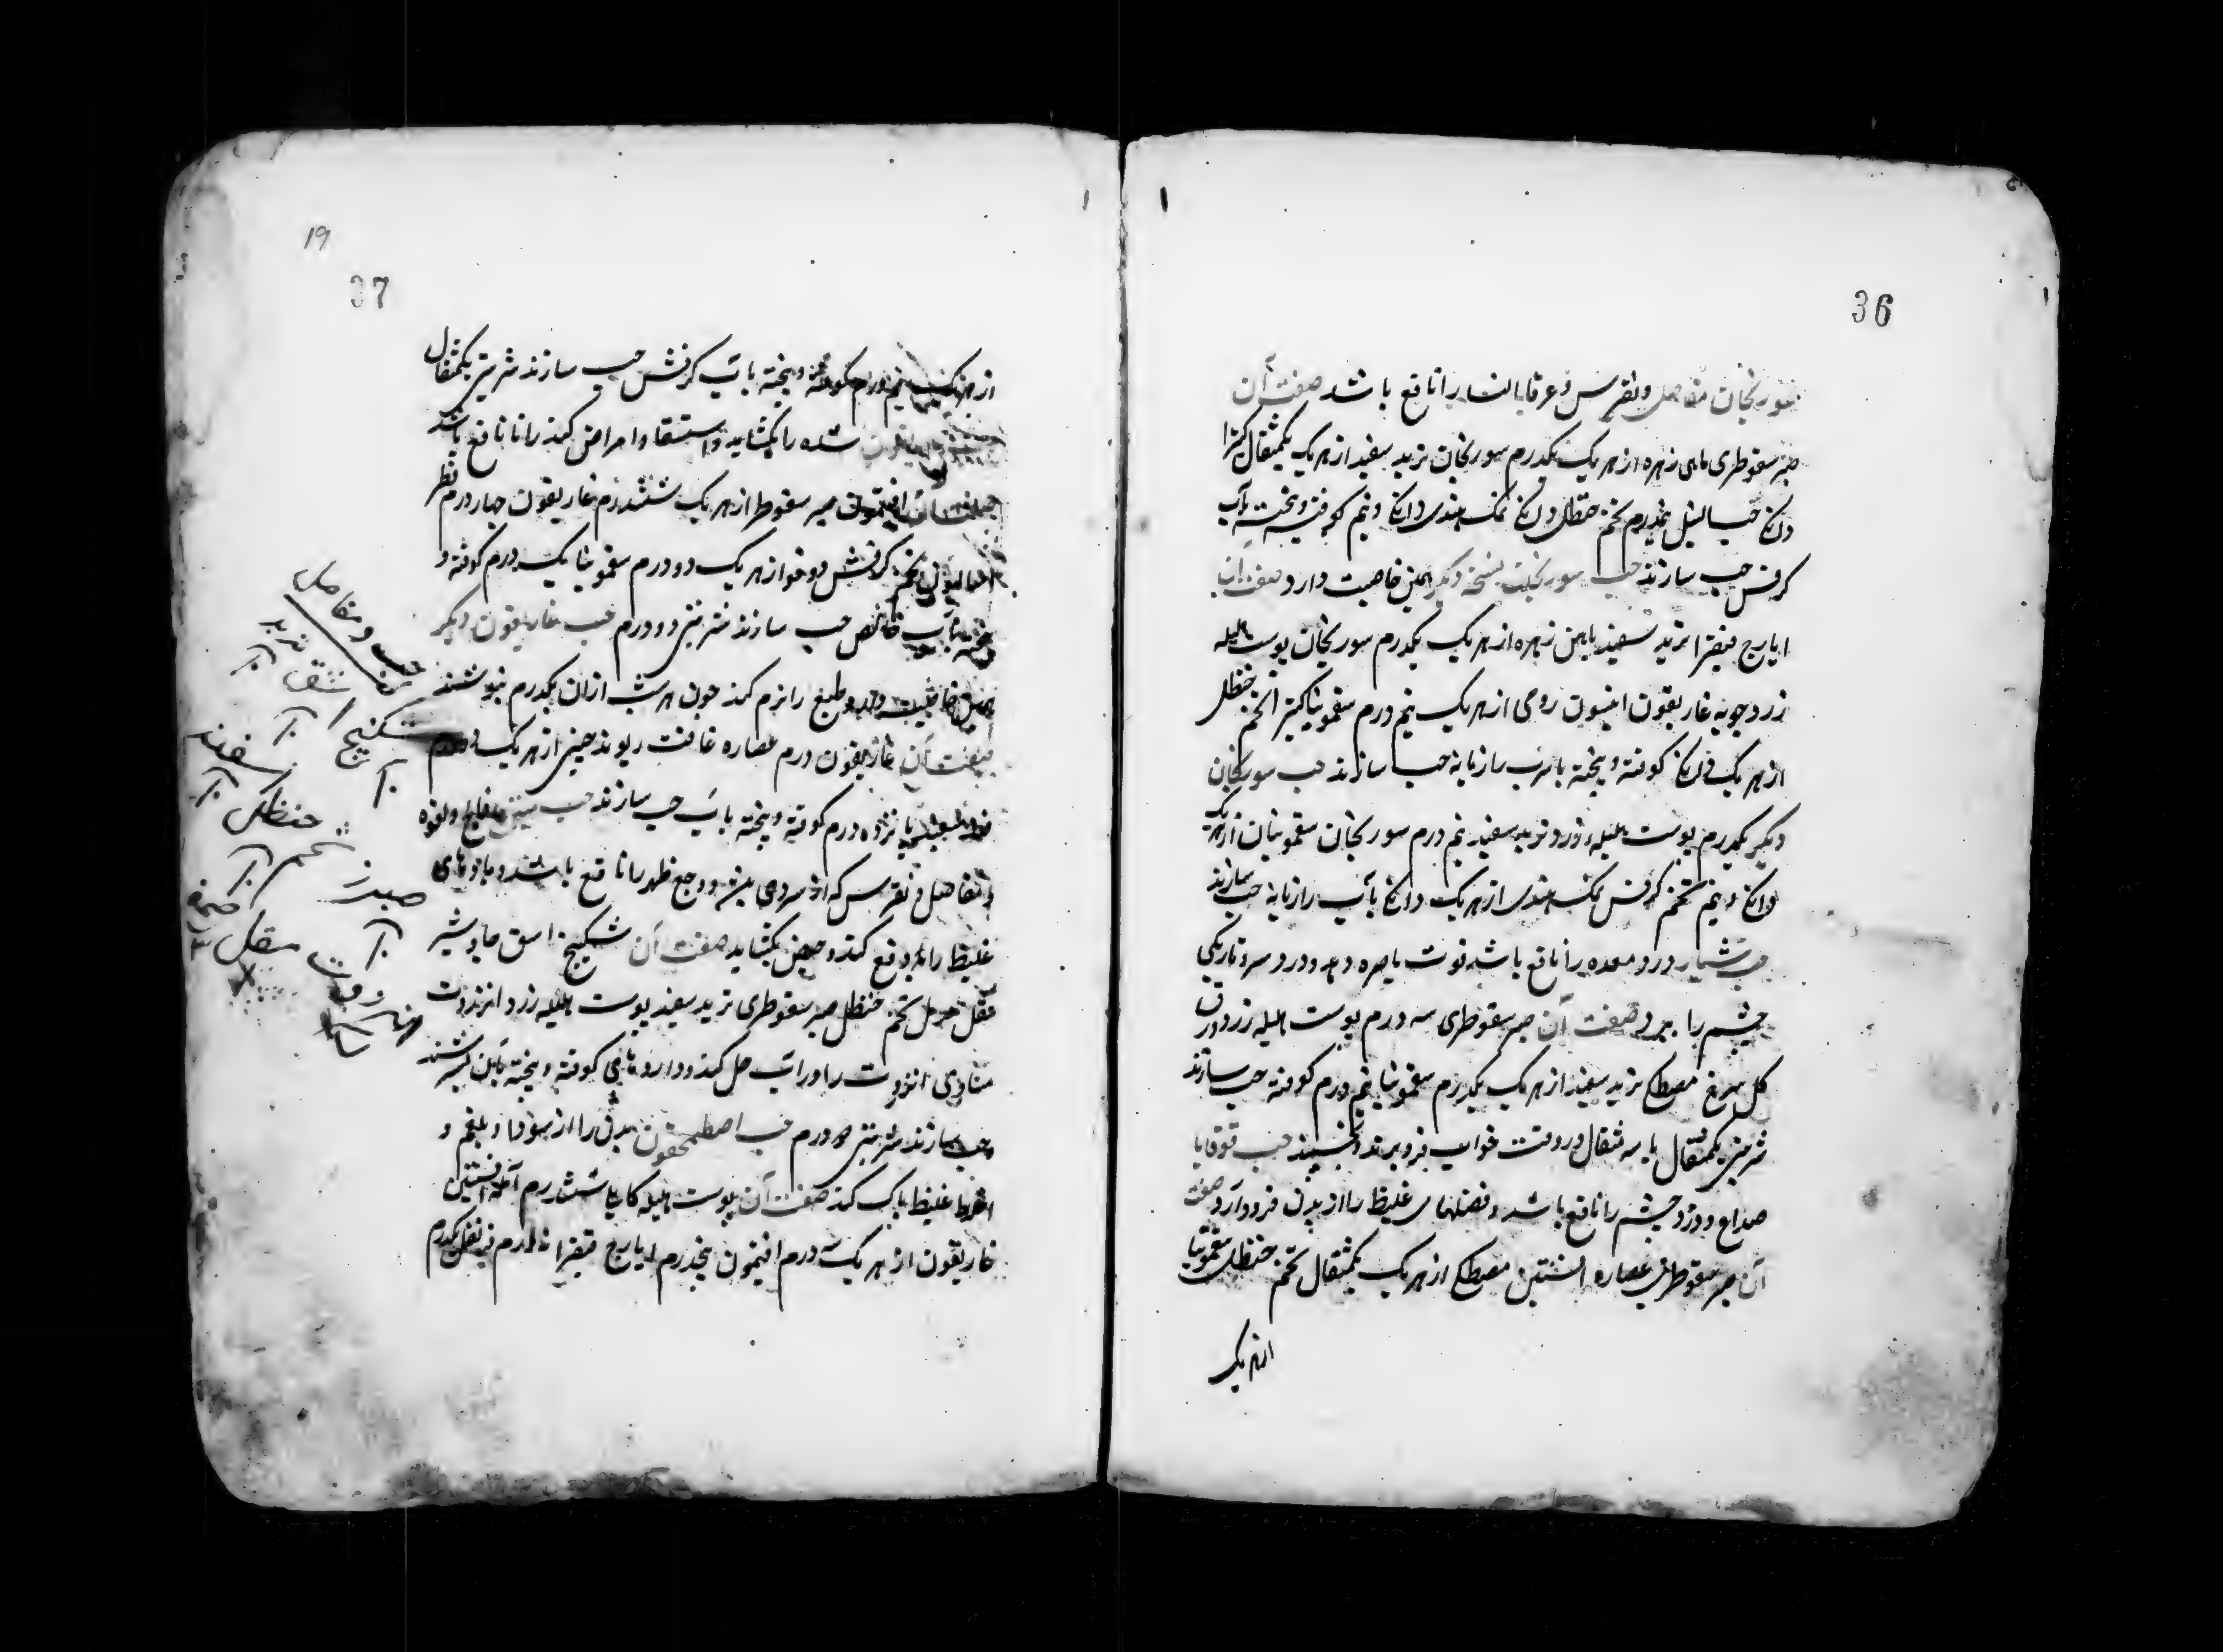 36
سورنجان مفاصل و نقرس و عرق النسا را نافع باشد صفت آن
صبر سقوطری ماهی زهره از هر یک یکدرم سورنجان تربد سفید از هر یک یکمثقال کتیرا
دانگی حب النیل نیمدرم تخم حنظل دانگی نمک هندی دانگی و نیم کوفته و بیخته بآب
کرفس حب سازند حب سورنجان نسخه دیگر همین خاصیت دارد صفت آن
ایارج فیقرا تربد سفید ماهی زهره از هر یک یکدرم سورنجان پوست هلیله
زرد جوبه غاریقون انیسون رومی از هر یک نیم درم سقمونیا کتیرا تخم حنظل
از هر یک دانگی کوفته و بیخته بآب رازیانه حب سازند حب سورنجان
دیگر یکدرم پوست هلیله زرد و تربد سفید نیم درم سورنجان سقمونیا از هر یک
دانگی و نیم تخم کرفس نمک هندی از هر یک دانگی بآب رازیانه حب سازند
حب شبیار درد معده را نافع باشد قوت باصره دهد و درد سر و تاریکی
چشم را ببرد صفت آن صبر سقوطری سه درم پوست هلیله زرد ورق
کل سرخ مصطکی تربد سفید از هر یک یکدرم سقمونیا نیم درم کوفته حب سازند
شربتی یکمثقال یا سه مثقال در وقت خواب فرو برند و بخسپند حب قوقایا
صداع و درد چشم را نافع باشد و فضلهای غلیظ را از بدن فرود آرد صفت
آن صبر سقوطری عصاره افسنتین مصطکی از هر یک یکمثقال تخم حنظل سقمونیا
از هر یک
19
37
از هر یک نیم درم کوفته و بیخته بآب کرفش حب سازند شربتی یکمثقال
شده را بکشاید و استسقا و امراض کهنه را نافع باشد
صفت آن افتیمون صبر سقوطر از هر یک ششدرم غاریقون چهار درم
تخم کرفش دوقو از هر یک دو درم سقمونیا یک درم کوفته و
بیخته بآب خالص حب سازند شربتی دو درم حب غاریقون دیگر
همین خاصیت دهد و طبع را نرم کند چون هر شب از ان یکدرم بنوشند
صفت آن غاریقون درم عصاره غافث ریوند چینی از هر یک
پانزده درم کوفته و بیخته بآب حب سازند حب منتن فالج و لقوه
و مفاصل و نقرس که از سردی بود و وجع ظهر را نافع باشد و بادهای
غلیظ را دفع کند و حیض بکشاید صفت آن سکبینج اشق جاوشیر
مقل حرمل تخم حنظل صبر سقوطری تربد سفید پوست هلیله زرد انزروت
مساوی انزروت را در آب حل کند و داروها فی کوفته و بیخته بآن بسرشند
و حب سازند شربتی دو درم حب اصطمحیقون بدن را از سودا و بلغم و
اخلاط غلیظ پاک کند صفت آن پوست هلیله کابلی ششدرم آمله افسنتین
غاریقون از هر یک سه درم افتیمون پنجدرم ایارج فیقرا درم قرنفل یکدرم
حب و مفاصل
تربد
سکبینج
سفند
حنظل
تخم
صبر زرد
مقل